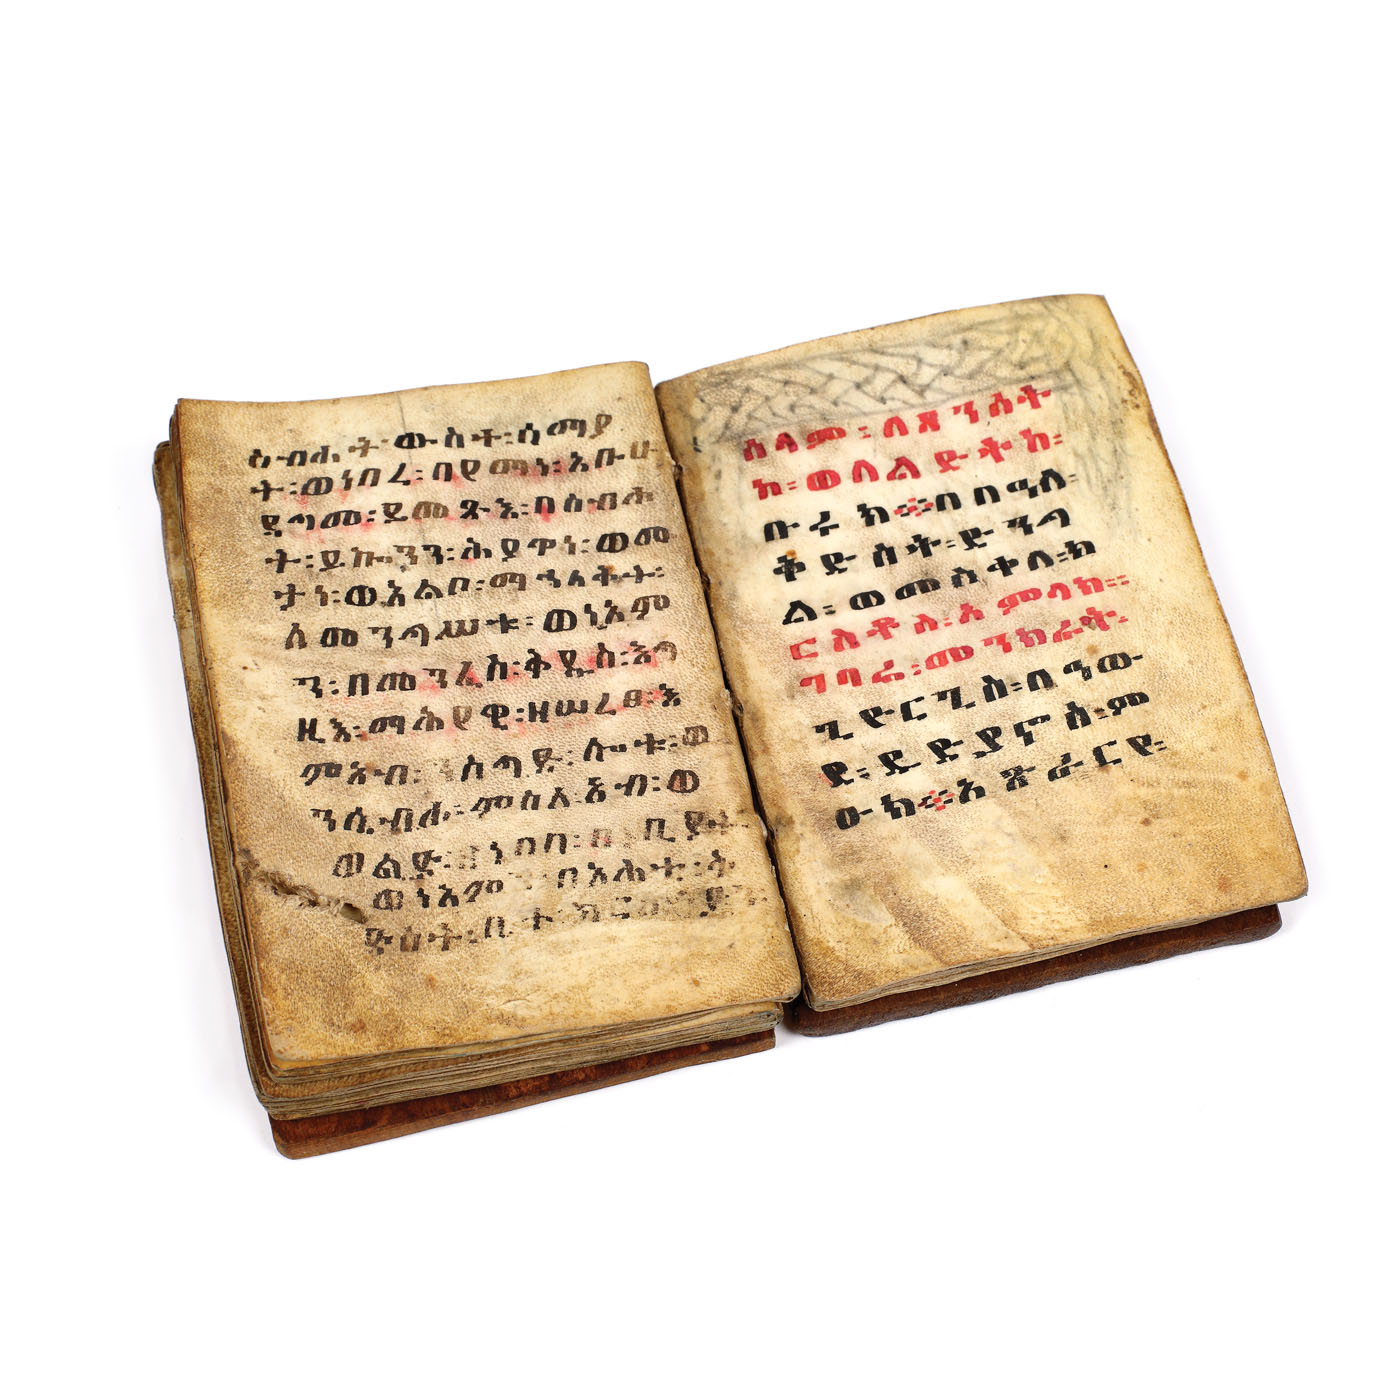 ስብሐት፡ውስተ፡ሰማያ
ት፡ወነበረ፡በየማነ፡አቡሁ
ዳግመ፡ይመጽእ፡በስብሐ
ት፡ይኰንን፡ሕያዋነ፡ወሙ
ታነ፡ወአልቦ፡ማኅለቅት፡
ለመንግሥቱ፡ወነአም
ን፡በመንፈስ፡ቅዱስ፡እግ
ዚእ፡ማሕየዊ፡ዘሠረፀ፡እ
ምአብ፡ንስግድ፡ሎቱ፡ወ
ንሴብሖ፡ምስለ፡አብ፡ወ
ወልድ፡ዘነበበ፡በነቢያት፡
ወነአምን፡በአሐቲ፡ቅ
ድስት፡ቤተ፡ክርስቲያን
ሰላም፡ለጸንሰት
ከ፡ወለልደትከ፡
ቡሩክ፨በበዓለ፡
ቅድስት፡ድንግ
ል፡ወመስቀለ፡ክ
ርስቶስ፡አምላክ፡
ገባሬ፡መንክራት፡
ጊዮርጊስ፡ለዓው
ደ፡ድድያኖስ፡ም
ዑክ፨አጽራርየ፡